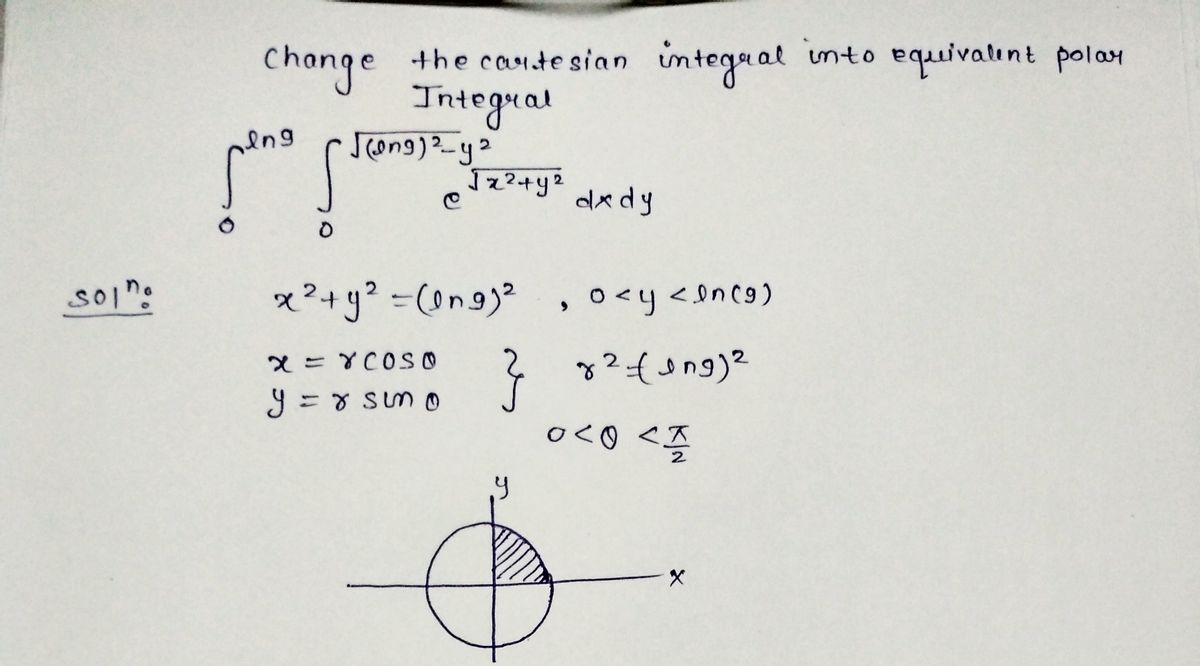 Change the cartesian integral into equivalent polar
Integral
∫₀^{ln9} ∫₀^{√((ln9)²-y²)} e^{√(x²+y²)} dxdy
Solⁿ: x²+y² = (ln9)² , 0<y<ln(9)
x = rcosθ } r² = (ln9)²
y = r sinθ
0<θ<π/2
y
x